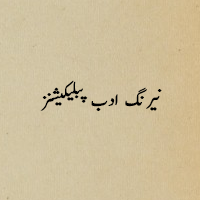 نیرنگ ادب پبلیکیشنز